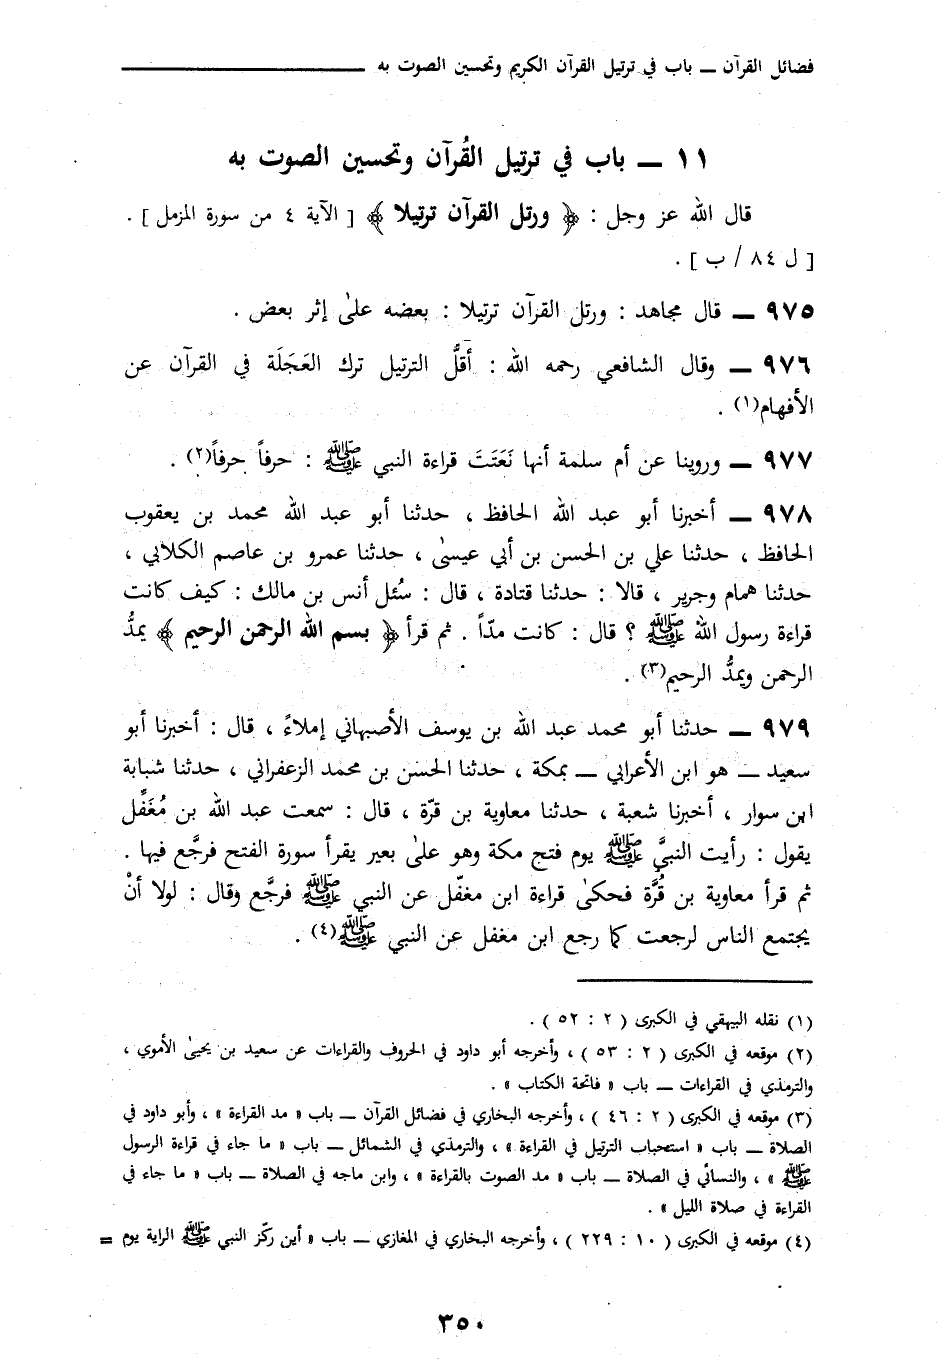 فضائل القرآن ــ باب في ترتيل القرآن الكريم وتحسين الصوت به
١١ ــ باب في ترتيل القُرآن وتحسين الصوت به
قال الله عز وجل : ﴿ ورتل القرآن ترتيلا ﴾ [ الآية ٤ من سورة المزمل ] .
[ ل ٨٤ / ب ] .
٩٧٥ ــ قال مجاهد : ورتل القرآن ترتيلا : بعضه علىٰ إثر بعض .
٩٧٦ ــ وقال الشافعي رحمه الله : أقلُّ الترتيل ترك العَجَلَة في القرآن عن
الأفهام(١) .
٩٧٧ ــ وروينا عن أم سلمة أنها نَعَتَتَ قراءة النبي ﷺ : حرفاً حرفاً(٢) .
٩٧٨ ــ أخبرنا أبو عبد الله الحافظ ، حدثنا أبو عبد الله محمد بن يعقوب
الحافظ ، حدثنا علي بن الحسن بن أبي عيسىٰ ، حدثنا عمرو بن عاصم الكلابي ،
حدثنا همام وجرير ، قالا : حدثنا قتادة ، قال : سُئل أنس بن مالك : كيف كانت
قراءة رسول الله ﷺ ؟ قال : كانت مدّاً . ثم قرأ ﴿ بسم الله الرحمن الرحيم ﴾ يمدُّ
الرحمن ويمدُّ الرحيم(٣) .
٩٧٩ ــ حدثنا أبو محمد عبد الله بن يوسف الأصبهاني إملاءً ، قال : أخبرنا أبو
سعيد ــ هو ابن الأعرابي ــ بمكة ، حدثنا الحسن بن محمد الزعفراني ، حدثنا شبابة
ابن سوار ، أخبرنا شعبة ، حدثنا معاوية بن قرّة ، قال : سمعت عبد الله بن مُغَفِّل
يقول : رأيت النبيَّ ﷺ يوم فتح مكة وهو علىٰ بعير يقرأ سورة الفتح فرجَّع فيها .
ثم قرأ معاوية بن قُرَّة فحكىٰ قراءة ابن مغفّل عن النبي ﷺ فرجَّع وقال : لولا أنْ
يجتمع الناس لرجعت كما رجع ابن مغفل عن النبي ﷺ(٤) .
(١) نقله البيهقي في الكبرى ( ٢ : ٥٢ ) .
(٢) موقعه في الكبرى ( ٢ : ٥٣ ) ، وأخرجه أبو داود في الحروف والقراءات عن سعيد بن يحيىٰ الأموي ،
والترمذي في القراءات ــ باب « فاتحة الكتاب » .
(٣) موقعه في الكبرى ( ٢ : ٤٦ ) ، وأخرجه البخاري في فضائل القرآن ــ باب « مد القراءة » ، وأبو داود في
الصلاة ــ باب « استحباب الترتيل في القراءة » ، والترمذي في الشمائل ــ باب « ما جاء في قراءة الرسول
ﷺ » ، والنسائي في الصلاة ــ باب « مد الصوت بالقراءة » ، وابن ماجه في الصلاة ــ باب « ما جاء في
القراءة في صلاة الليل » .
(٤) موقعه في الكبرى ( ١٠ : ٢٢٩ ) ، وأخرجه البخاري في المغازي ــ باب « أين ركّز النبي ﷺ الراية يوم =
٣٥٠